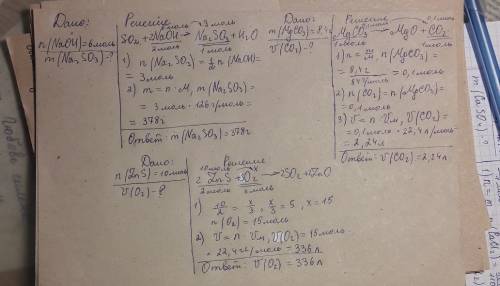 Дано:
n(NaOH)=6моль
m(Na₂SO₃)-?
Решение
6моль x3моль
SO₂+2NaOH → Na₂SO₃+H₂O
2моль 1моль
1) n(Na₂SO₃)=½n(NaOH)=
=3моль
2) m=n·M, m(Na₂SO₃)=
=3моль·126г/моль=
=378г
Ответ: m(Na₂SO₃)=378г
Дано:
m(MgCO₃)=8,4г
V(CO₂)-?
Решение
0,1моль
MgCO₃ → MgO + CO₂
1моль 1моль
1) n=m/M, n(MgCO₃)=
=8,4г/84г/моль=0,1моль
2) n(CO₂)=n(MgCO₃)=
=0,1моль
3) V=n·Vм, V(CO₂)=
=0,1моль·22,4л/моль=
=2,24л
Ответ: V(CO₂)=2,24л
Дано:
n(ZnS)=10моль
V(O₂)-?
Решение
10моль x
2ZnS+3O₂ → 2SO₂+2ZnO
2моль 3моль
1) 10/2=x/3, x/3=5, x=15
n(O₂)=15моль
2) V=n·Vм, V(O₂)=15моль·
·22,4л/моль=336л
Ответ: V(O₂)=336л